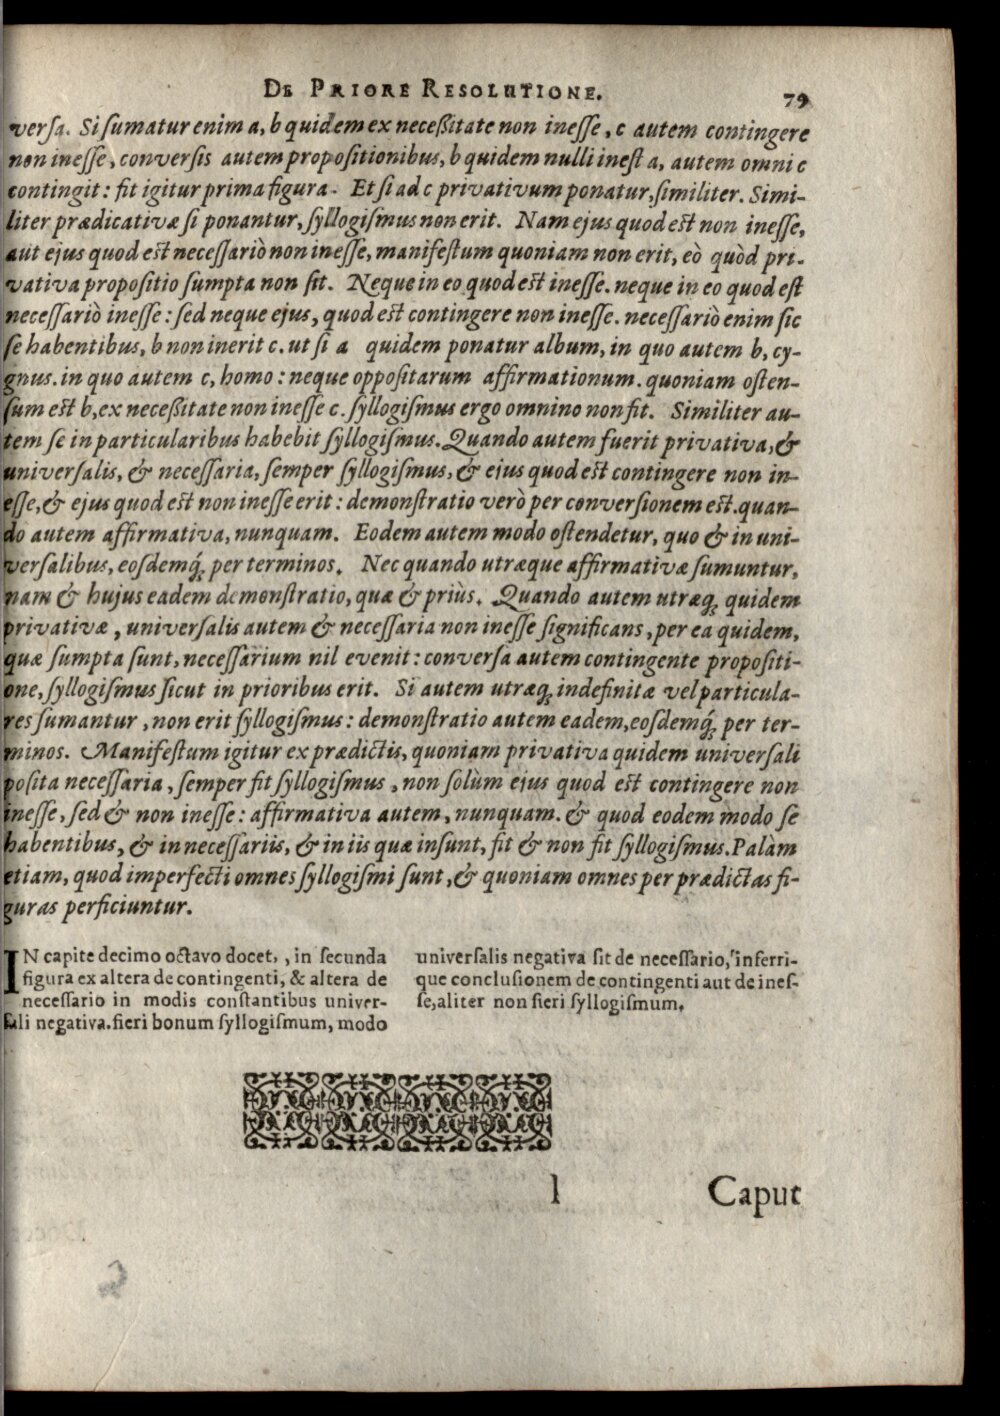 DE PRIORE RESOLUTIONE.
79
versa. Si sumatur enim a, b quidem ex neceßitate non inesse, c autem contingere
non inesse, conversis autem propositionibus, b quidem nulli inest a, autem omni c
contingit: fit igitur prima figura. Et si ad c privativum ponatur, similiter. Simi-
liter prædicativæ si ponantur, syllogismus non erit. Nam ejus quod est non inesse,
aut ejus quod est necessariò non inesse, manifestum quoniam non erit, eò quòd pri-
vativa propositio sumpta non sit. Neque in eo quod est inesse. neque in eo quod est
necessariò inesse: sed neque ejus, quod est contingere non inesse. necessariò enim sic
se habentibus, b non inerit c. ut si a quidem ponatur album, in quo autem b, cy-
gnus. in quo autem c, homo: neque oppositarum affirmationum. quoniam osten-
sum est b, ex neceßitate non inesse c. syllogismus ergo omnino non fit. Similiter au-
tem se in particularibus habebit syllogismus. Quando autem fuerit privativa, &
universalis, & necessaria, semper syllogismus, & ejus quod est contingere non in-
esse, & ejus quod est non inesse erit: demonstratio verò per conversionem est. quan-
do autem affirmativa, nunquam. Eodem autem modo ostendetur, quo & in uni-
versalibus, eosdemq́; per terminos. Nec quando utræque affirmativæ sumuntur,
nam & hujus eadem demonstratio, quæ & priùs. Quando autem utræq; quidem
privativæ, universalis autem & necessaria non inesse significans, per ea quidem,
quæ sumpta sunt, necessarium nil evenit: conversa autem contingente propositi-
one, syllogismus sicut in prioribus erit. Si autem utræq; indefinitæ vel particula-
res sumantur, non erit syllogismus: demonstratio autem eadem, eosdemq́; per ter-
minos. Manifestum igitur ex prædictis, quoniam privativa quidem universali
posita necessaria, semper fit syllogismus, non solùm ejus quod est contingere non
inesse, sed & non inesse: affirmativa autem, nunquam. & quod eodem modo se
habentibus, & in necessariis, & in iis quæ insunt, fit & non fit syllogismus. Palàm
etiam, quod imperfecti omnes syllogismi sunt, & quoniam omnes per prædictas fi-
guras perficiuntur.
IN capite decimo octavo docet, , in secunda
figura ex altera de contingenti, & altera de
necessario in modis constantibus univer-
sali negativa. fieri bonum syllogismum, modo
universalis negativa sit de necessario, inferri-
que conclusionem de contingenti aut de ines-
se, aliter non fieri syllogismum.
l
Caput